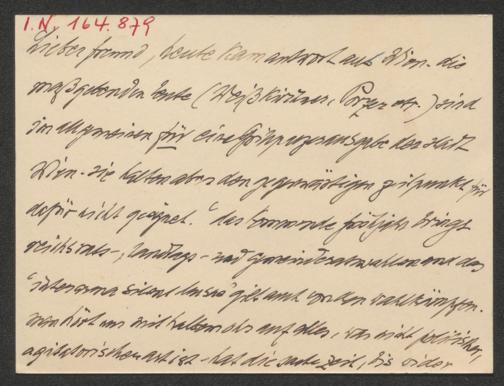 I.N. 164.879
Lieber freund, heute kam antwort aus Wien. die
maßgebenden leute (Weißkirchner, Porzer etr.) sind
im allgemeinen für eine ausgabe der stadt
Wien. sie halten aber den gegenwärtigen zeitpunkt für
dafür nicht geeignet. "das kommende frühjahr bringt
reichsrats-, landtags- und gemeinderatswahlen und das
"inter arma silent musae" gilt auch von den wahlkämpfen.
man hört uns mit halbem ohr auf alles, was nicht politischer,
agitatorischer art ist - hat die sache zeit, bis wieder